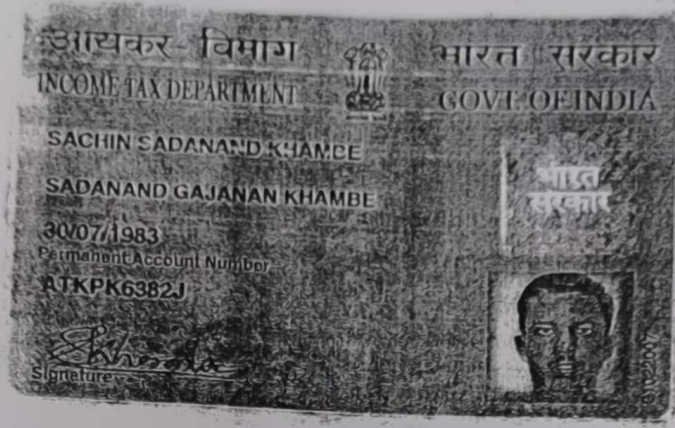 आयकर विभाग
भारत सरकार
INCOME TAX DEPARTMENT
GOVT. OF INDIA
SACHIN SADANAND KHAMBE
SADANAND GAJANAN KHAMBE
भारत
सरकार
30/07/1983
Permanent Account Number
ATKPK6382J
Signature